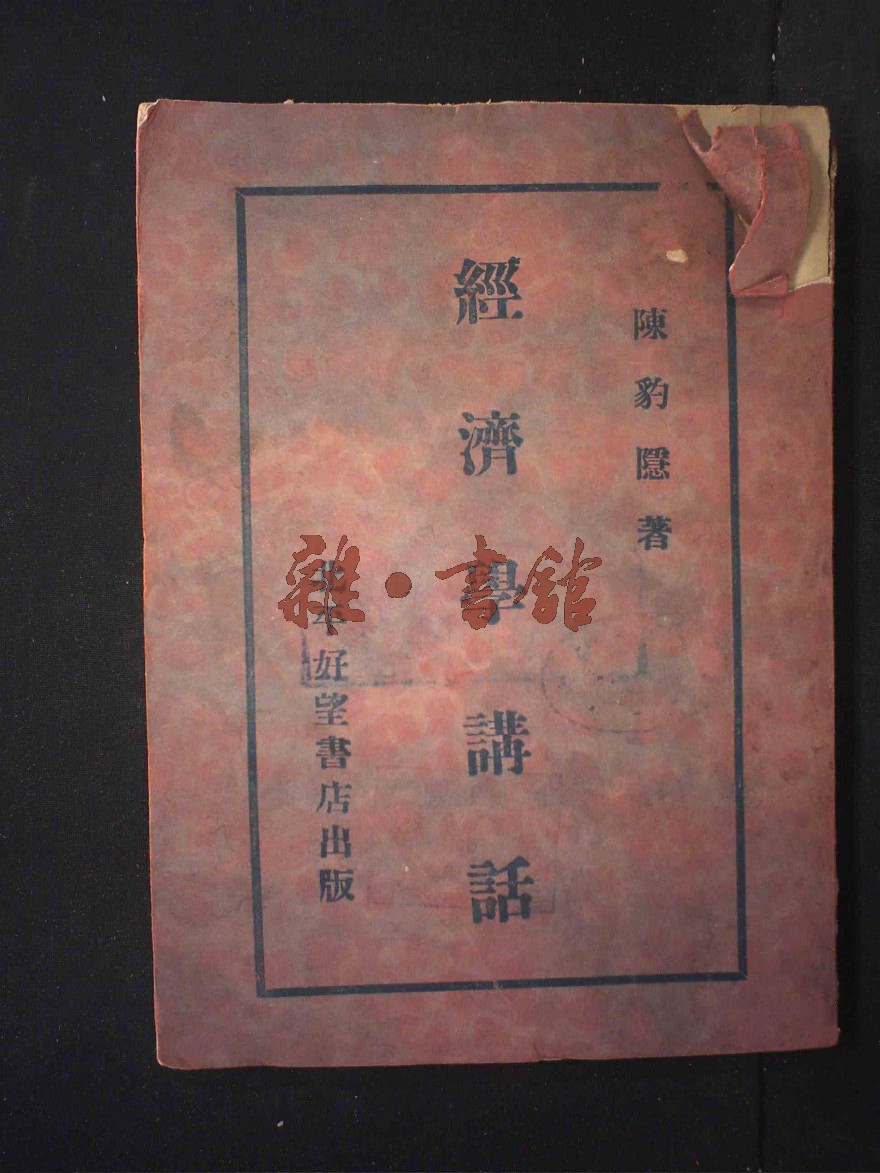 陳豹隱著
經濟學講話
北平好望書店出版
雜·書館